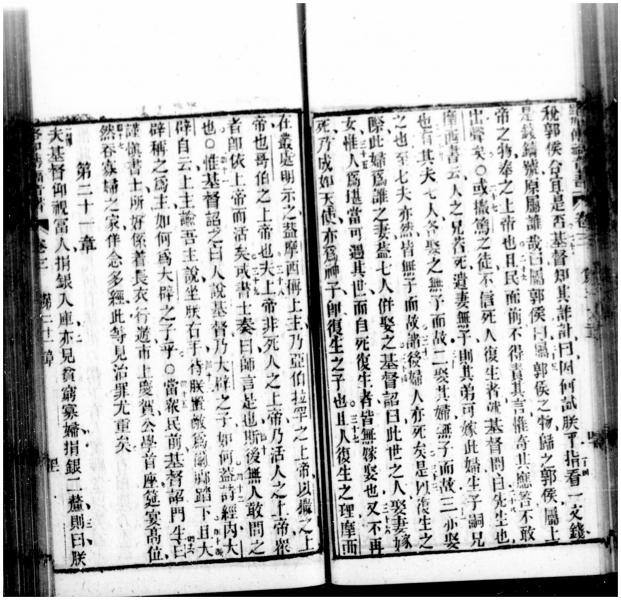 稅郭侯合宜是否基督知其詐計曰因何試朕乎指看一文錢
是錢鑄號原屬誰哉曰屬郭侯曰屬郭侯之物歸之郭侯屬上
帝之物奉之上帝也且民面前不得責其言惟奇其應答不敢
出聲矣○或撒篤之徒不信死人復生者就基督問曰先生也
摩西書云人之兄若死遺妻無子則其弟可嫁此婦生子嗣兄
也有其夫七人各娶之無子而故二娶其婦無子而故三亦娶
之也至七夫亦然皆無子而故諸後婦人亦死矣是以復生之
際此婦爲誰之妻蓋七人併娶之基督詔曰此世之人娶妻嫁
女惟人爲堪當可遇其世而自死復生者皆無嫁娶也又不再
死乃成如天使亦爲神子卽復生之子也且人復生之理摩西
在叢處明示之蓋摩西稱上主乃亞伯拉罕之上帝以撒之上
帝也哥伯之上帝也夫上帝非死人之上帝乃活人之上帝衆
者卽依上帝而活矣或書士奏曰師言是也斯後無人敢問之
也○惟基督詔之曰人說基督乃大辟之子如何蓋詩經內大
辟自云上主諭吾主說坐朕右于待朕置敵爲爾脚踏下且大
辟稱之爲主如何爲大辟之子乎○當衆民前基督詔門生曰
謹愼書士所好係着長衣行遊市上慶賀公學首座筵宴高位
然吞寡婦之家佯念多經此等見治罪尤重矣
第二十一章
夫基督仰視富人捐銀入庫亦見貧窮寡婦捐銀二釐則曰朕